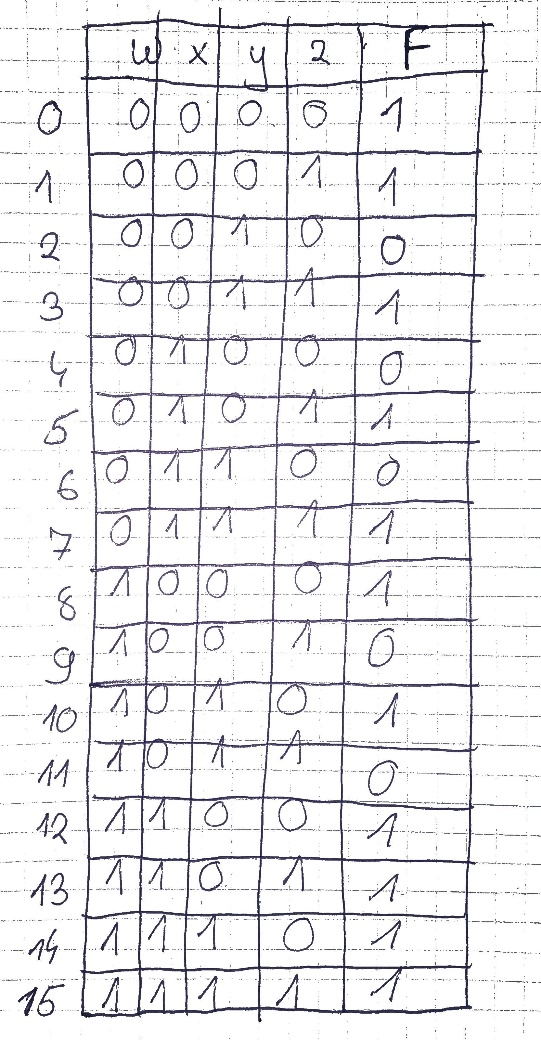 w x y z F
0 0 0 0 0 1
1 0 0 0 1 1
2 0 0 1 0 0
3 0 0 1 1 1
4 0 1 0 0 0
5 0 1 0 1 1
6 0 1 1 0 0
7 0 1 1 1 1
8 1 0 0 0 1
9 1 0 0 1 0
10 1 0 1 0 1
11 1 0 1 1 0
12 1 1 0 0 1
13 1 1 0 1 1
14 1 1 1 0 1
15 1 1 1 1 1